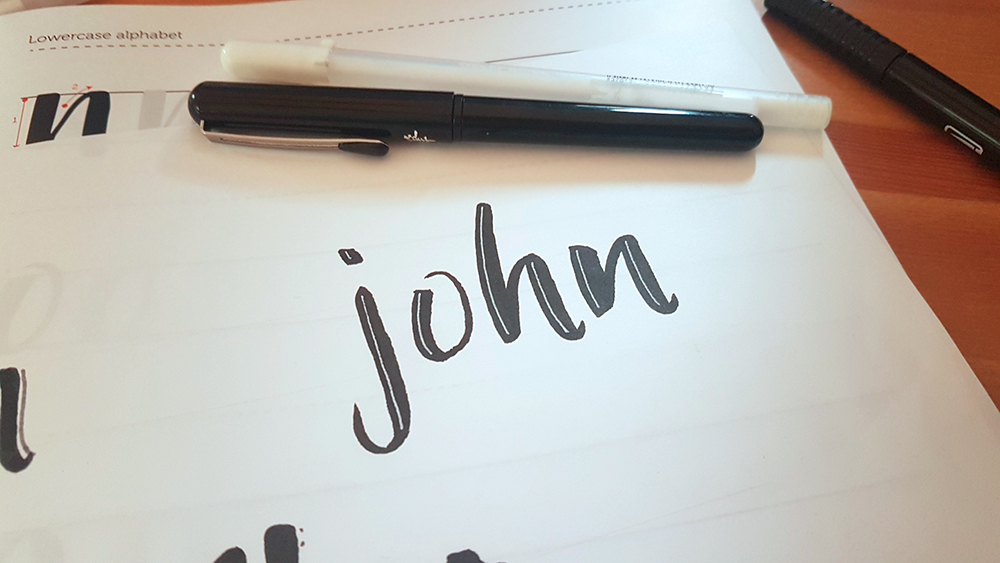 Lowercase alphabet
1
2
n
john